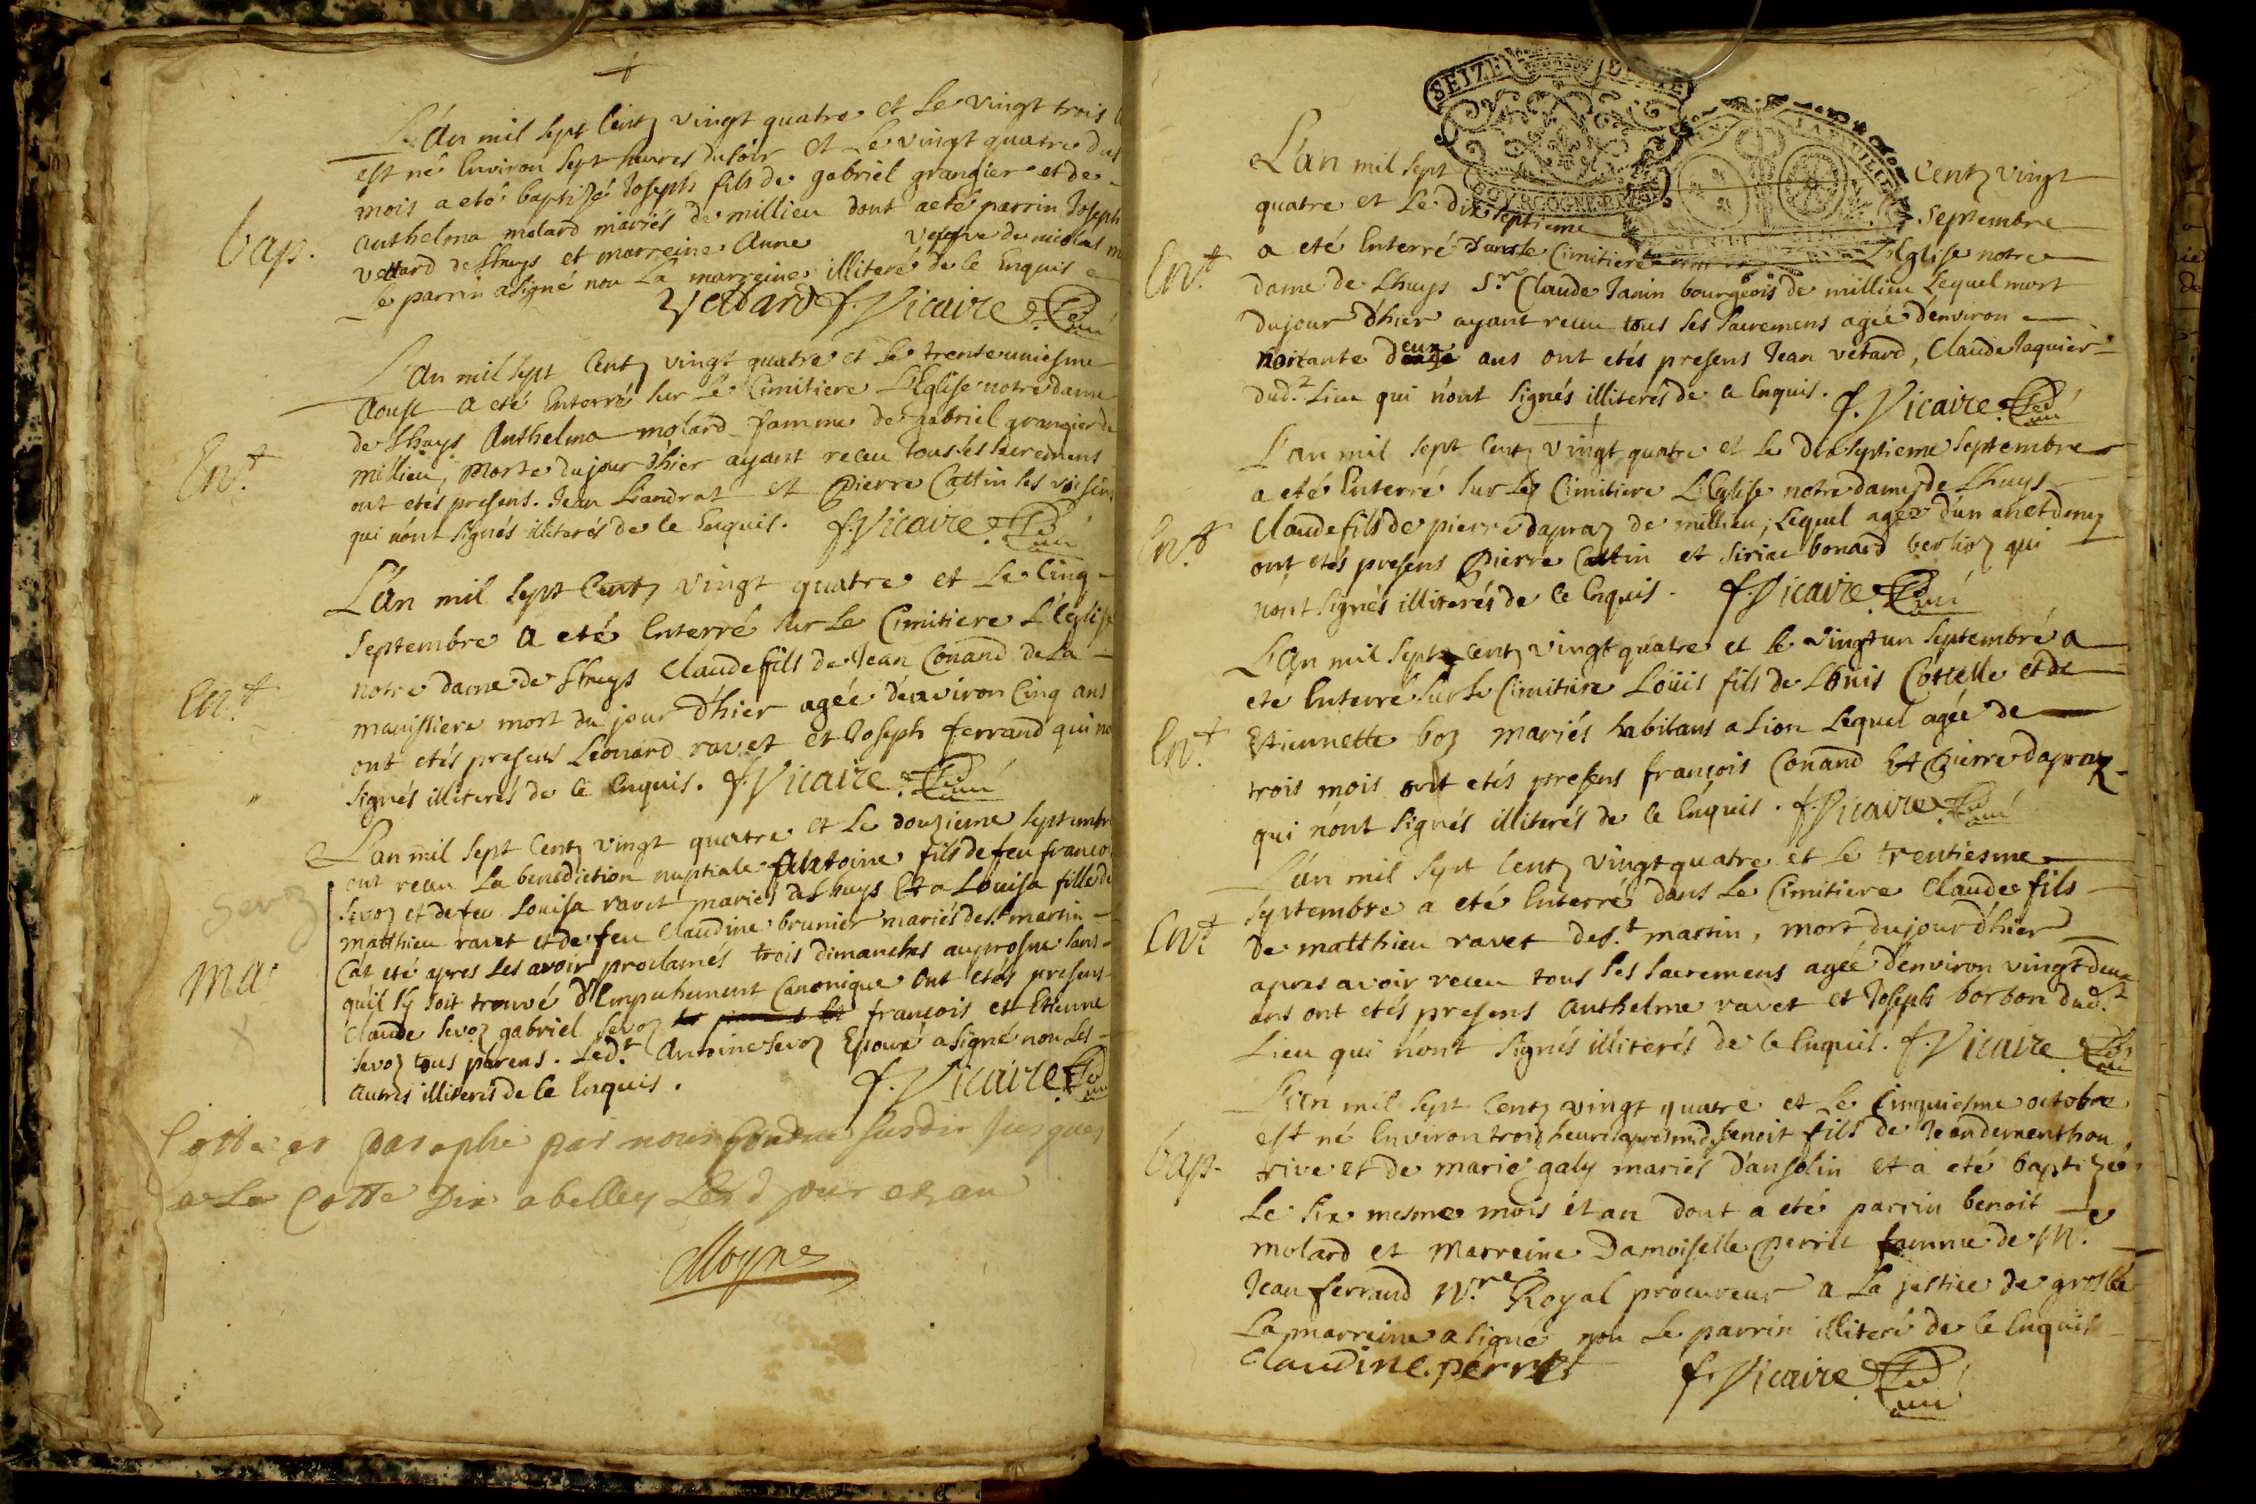 L'an mil sept Centz vingt quatre et Le vingt trois
est né Environ sept heures du soir et Le vingt quatre dud
mois a eté baptizé Joseph fils de gabriel grangier et de
bap.
anthelma molard mariés de millieu dont a eté parrin Joseph
vettard de Lhuys et marreine Anne veufve de nicolas
Le parrin a signé non La marreine illiteré de ce Enquis
Vettard f. Vicaire Curé
L'an mil sept Centz vingt quatre et Le trente uniesme
Aoust a eté Enterré sur Le Cimitiere L'Eglise notre dame
de Lhuys Anthelma molard famme de gabriel grangier de
Ent.
millieu, morte du jour d'hier ayant receu tous les sacremens
ont etés presens. Jean Liandrat et Pierre Cattin ses voisins
qui n'ont signés illiterés de ce Enquis. f. Vicaire Curé
L'an mil sept Centz vingt quatre et Le Cinq
septembre a eté Enterré sur Le Cimitiere L'Eglise
Ent.
notre dame de Lhuys Claude fils de Jean Conand de La
manissiere mort du jour d'hier agée d'environ Cinq ans
ont etés presens Leonard ravet et Joseph ferrand qui n'o
signés illiterés de ce Enquis. f. Vicaire Curé
L'an mil sept Centz vingt quatre et Le douzieme septembre
ont receu La benediction nuptiale Antoine fils de feu franco
sevoz
sevoz et de feu Louisa ravet mariés de Lhuys Et a Louisa fille de
matthieu ravet et de feu Claudine brunier mariés de s.t martin
Ma
C'at eté apres Les avoir proclamés trois dimanches au prosne sans
qu'il s'y soit trouvé d'Empechement Canonique ont etés presens
Claude sevoz gabriel sevoz françois et Etienne
sevoz tous parens. Led.t Antoine sevoz Epoux a signé non Les
autres illiterés de ce Enquis. f. Vicaire Curé
Cotté et paraphé par nous susdit jusques
a La Cotte dix a belley Lesd jour et an
Moyne
SEIZE
BOURGOGNE
L'an mil sept Centz vingt
quatre et Le dix septieme septembre
Ent.
a eté Enterré dans Le Cimitiere L'Eglise notre
dame de Lhuys S.r Claude Janin bourgeois de millieu Lequel mort
du jour d'hier ayant receu tous ses sacremens agée d'environ
deux ans ont etés presens Jean vetard, Claude Jaquier
dud.t Lieu qui n'ont signés illiterés de ce Enquis. f. Vicaire Curé
L'an mil sept Centz vingt quatre et Le dix septieme septembre
a eté Enterré sur Le Cimitiere L'Eglise notre dame de Lhuys
Ent.
Claude fils de pierre dapraz de millieu, Lequel agée d'un an et demy
ont etés presens Pierre Cattin et siriac bonard qui
n'ont signés illiterés de ce Enquis. f. Vicaire Curé
L'an mil sept Centz vingt quatre et Le vingt un septembre a
eté Enterré sur Le Cimitiere Loüis fils de Louis Cottelle et de
Ent.
Etiennette boz mariés habitans a Lion Lequel agée de
trois mois ont etés presens françois Conand Et Pierre dapraz
qui n'ont signés illiterés de ce Enquis. f. Vicaire Curé
L'an mil sept Centz vingt quatre et Le trentiesme
septembre a eté Enterré dans Le Cimitiere Claude fils
Ent.
de matthieu ravet de s.t martin, mort du jour d'hier
apres avoir receu tous ses sacremens agée d'environ vingt deux
ans ont etés presens Anthelme ravet et Joseph borbon dud.t
Lieu qui n'ont signés illiterés de ce Enquis. f. Vicaire Curé
L'an mil sept Centz vingt quatre et Le Cinquiesme octobre
est né Environ trois heures apres midy benoit fils de Jean dementhon
bap.
rive et de marie galy mariés d'ansolin et a eté baptizé
Le six mesme mois et an dont a eté parrin benoit
molard et Marreine Damoiselle Perret famme de M.
Jean ferrand N.re Royal procureur a La justice de groslée
La marreine a signé non Le parrin illiteré de ce Enquis
Claudine perret f. Vicaire Curé